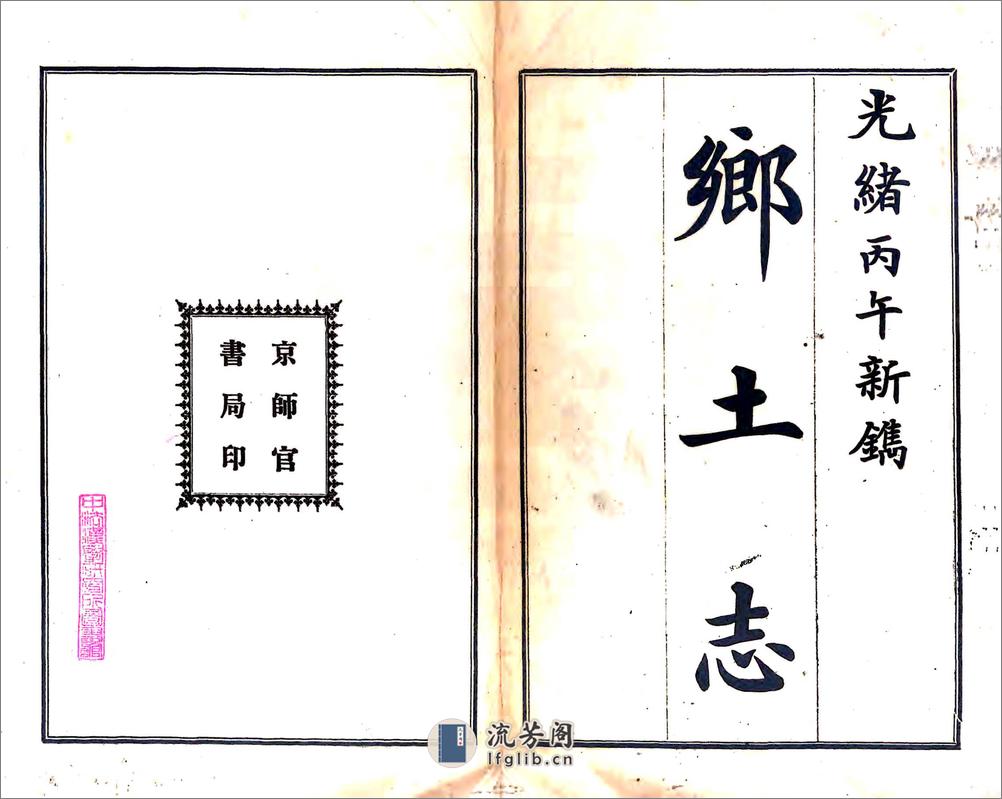 光緒丙午新鐫
鄉土志
京師官
書局印
流芳阁
lfglib.cn